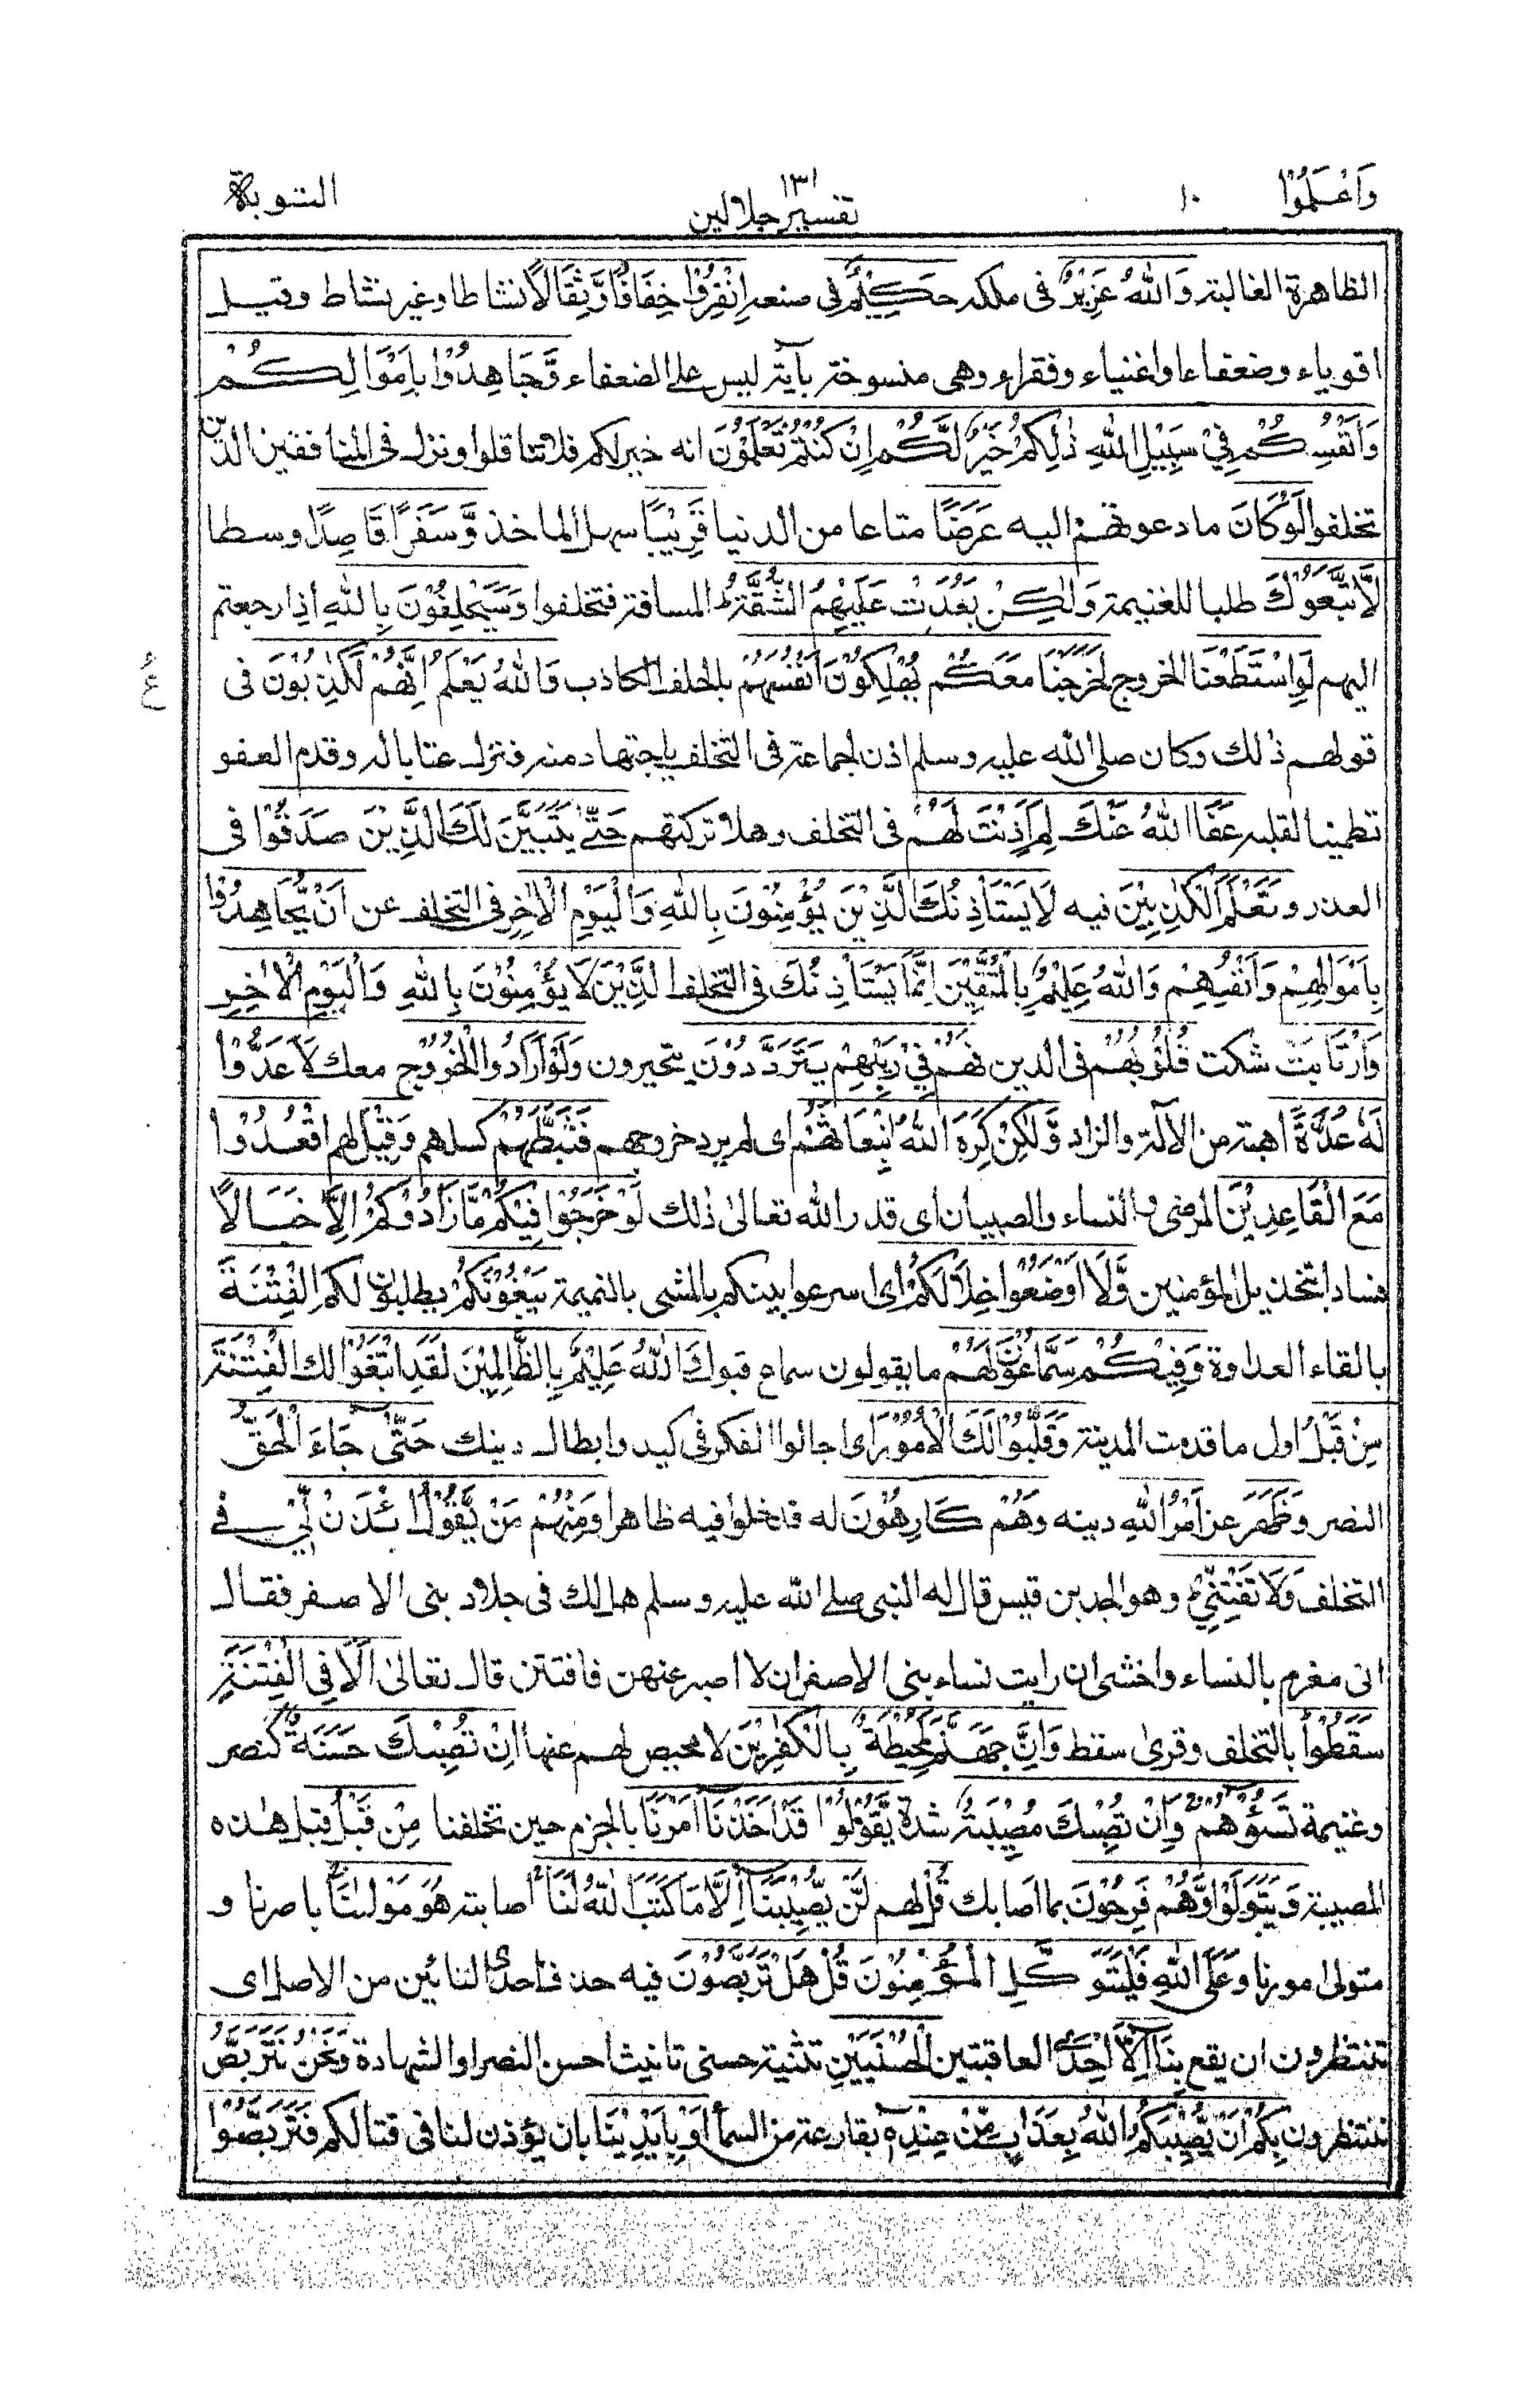 وَاعْلَمُوْا ١٠
١٣١
تفسير جلالين
التوبة
الظاهرة الغالبة وَاللهُ عَزِيْزٌ فى ملكه حَكِيْمٌ فى صنعه اِنْفِرُوْا خِفَافًا وَّثِقَالًا نشاطا وغير نشاط وقيل
اقوياء وضعفاء او اغنياء وفقراء وهى منسوخة بآية ليس على الضعفاء وَّجَاهِدُوْا بِاَمْوَالِكُمْ
وَاَنْفُسِكُمْ فِيْ سَبِيْلِ اللهِ ذٰلِكُمْ خَيْرٌ لَّكُمْ اِنْ كُنْتُمْ تَعْلَمُوْنَ انه خير لكم فلا تثاقلوا ونزل فى المنافقين الذين
تخلفوا لَوْ كَانَ ما دعوتهم اليه عَرَضًا متاعا من الدنيا قَرِيْبًا سهل الماخذ وَّسَفَرًا قَاصِدًا وسطا
لَّاتَّبَعُوْكَ طلبا للغنيمة وَلٰكِنْ بَعُدَتْ عَلَيْهِمُ الشُّقَّةُ المسافة فتخلفوا وَسَيَحْلِفُوْنَ بِاللهِ اذا رجعتم
اليهم لَوِ اسْتَطَعْنَا الخروج لَخَرَجْنَا مَعَكُمْ يُهْلِكُوْنَ اَنْفُسَهُمْ بالحلف الكاذب وَاللهُ يَعْلَمُ اِنَّهُمْ لَكٰذِبُوْنَ فى
ع
قولهم ذلك وكان صلى الله عليه وسلم اذن لجماعة فى التخلف باجتهاد منه فنزل عتابا له وقدم العفو
تطمينا لقلبه عَفَا اللهُ عَنْكَ لِمَ اَذِنْتَ لَهُمْ فى التخلف وهلا تركتهم حَتّٰى يَتَبَيَّنَ لَكَ الَّذِيْنَ صَدَقُوْا فى
العذر وَتَعْلَمَ الْكٰذِبِيْنَ فيه لَا يَسْتَاْذِنُكَ الَّذِيْنَ يُؤْمِنُوْنَ بِاللهِ وَالْيَوْمِ الْاٰخِرِ فى التخلف عن اَنْ يُّجَاهِدُوْا
بِاَمْوَالِهِمْ وَاَنْفُسِهِمْ وَاللهُ عَلِيْمٌ بِالْمُتَّقِيْنَ اِنَّمَا يَسْتَاْذِنُكَ فى التخلف الَّذِيْنَ لَا يُؤْمِنُوْنَ بِاللهِ وَالْيَوْمِ الْاٰخِرِ
وَارْتَابَتْ شكت قُلُوْبُهُمْ فى الدين فَهُمْ فِيْ رَيْبِهِمْ يَتَرَدَّدُوْنَ يتحيرون وَلَوْ اَرَادُوا الْخُرُوْجَ معك لَاَعَدُّوْا
لَهٗ عُدَّةً اهبة من الآلة والزاد وَّلٰكِنْ كَرِهَ اللهُ انْبِعَاثَهُمْ اى لم يرد خروجهم فَثَبَّطَهُمْ كسلهم وَقِيْلَ لهم اقْعُدُوْا
مَعَ الْقَاعِدِيْنَ المرضى والنساء والصبيان اى قدر الله تعالى ذلك لَوْ خَرَجُوْا فِيْكُمْ مَّا زَادُوْكُمْ اِلَّا خَبَالًا
فسادا بتخذيل المؤمنين وَّلَا۟اَوْضَعُوْا خِلَالَكُمْ اى اسرعوا بينكم بالمشى بالنميمة يَبْغُوْنَكُمُ يطلبون لكم الْفِتْنَةَ
بالقاء العداوة وَفِيْكُمْ سَمَّاعُوْنَ لَهُمْ ما يقولون سماع قبول وَاللهُ عَلِيْمٌ بِالظّٰلِمِيْنَ لَقَدِ ابْتَغَوُا لك الْفِتْنَةَ
مِنْ قَبْلُ اول ما قدمت المدينة وَقَلَّبُوْا لَكَ الْاُمُوْرَ اى اجالوا الفكر فى كيد وابطال دينك حَتّٰى جَاءَ الْحَقُّ
النصر وَظَهَرَ عز اَمْرُ اللهِ دينه وَهُمْ كَارِهُوْنَ له فدخلوا فيه ظاهرا وَمِنْهُمْ مَنْ يَّقُوْلُ ائْذَنْ لِّيْ فى
التخلف وَلَا تَفْتِنِّيْ وهو الجد بن قيس قال له النبى صلى الله عليه وسلم هل لك فى جلاد بنى الاصفر فقال
انى مغرم بالنساء واخشى ان رايت نساء بنى الاصفر ان لا اصبر عنهن فافتتن قال تعالى اَلَا فِى الْفِتْنَةِ
سَقَطُوْا بالتخلف وقرئ سقط وَاِنَّ جَهَنَّمَ لَمُحِيْطَةٌ بِالْكٰفِرِيْنَ لا محيص لهم عنها اِنْ تُصِبْكَ حَسَنَةٌ كنصر
وغنيمة تَسُؤْهُمْ وَاِنْ تُصِبْكَ مُصِيْبَةٌ شدة يَّقُوْلُوْا قَدْ اَخَذْنَا اَمْرَنَا بالجزم حين تخلفنا مِنْ قَبْلُ قبل هذه
المصيبة وَيَتَوَلَّوْا وَّهُمْ فَرِحُوْنَ بما اصابك قُلْ لهم لَّنْ يُّصِيْبَنَا اِلَّا مَا كَتَبَ اللهُ لَنَا اصابته هُوَ مَوْلٰنَا ناصرنا و
متولى امورنا وَعَلَى اللهِ فَلْيَتَوَكَّلِ الْمُؤْمِنُوْنَ قُلْ هَلْ تَرَبَّصُوْنَ فيه حذف احدى التائين من الاصل اى
تنتظرون ان يقع بِنَا اِلَّا اِحْدَى العاقبتين الْحُسْنَيَيْنِ تثنية حسنى تانيث احسن النصر او الشهادة وَنَحْنُ نَتَرَبَّصُ
ننتظرون بِكُمْ اَنْ يُّصِيْبَكُمُ اللهُ بِعَذَابٍ مِّنْ عِنْدِهٖ بقارعة من السماء اَوْ بِاَيْدِيْنَا بان يؤذن لنا فى قتالكم فَتَرَبَّصُوْا